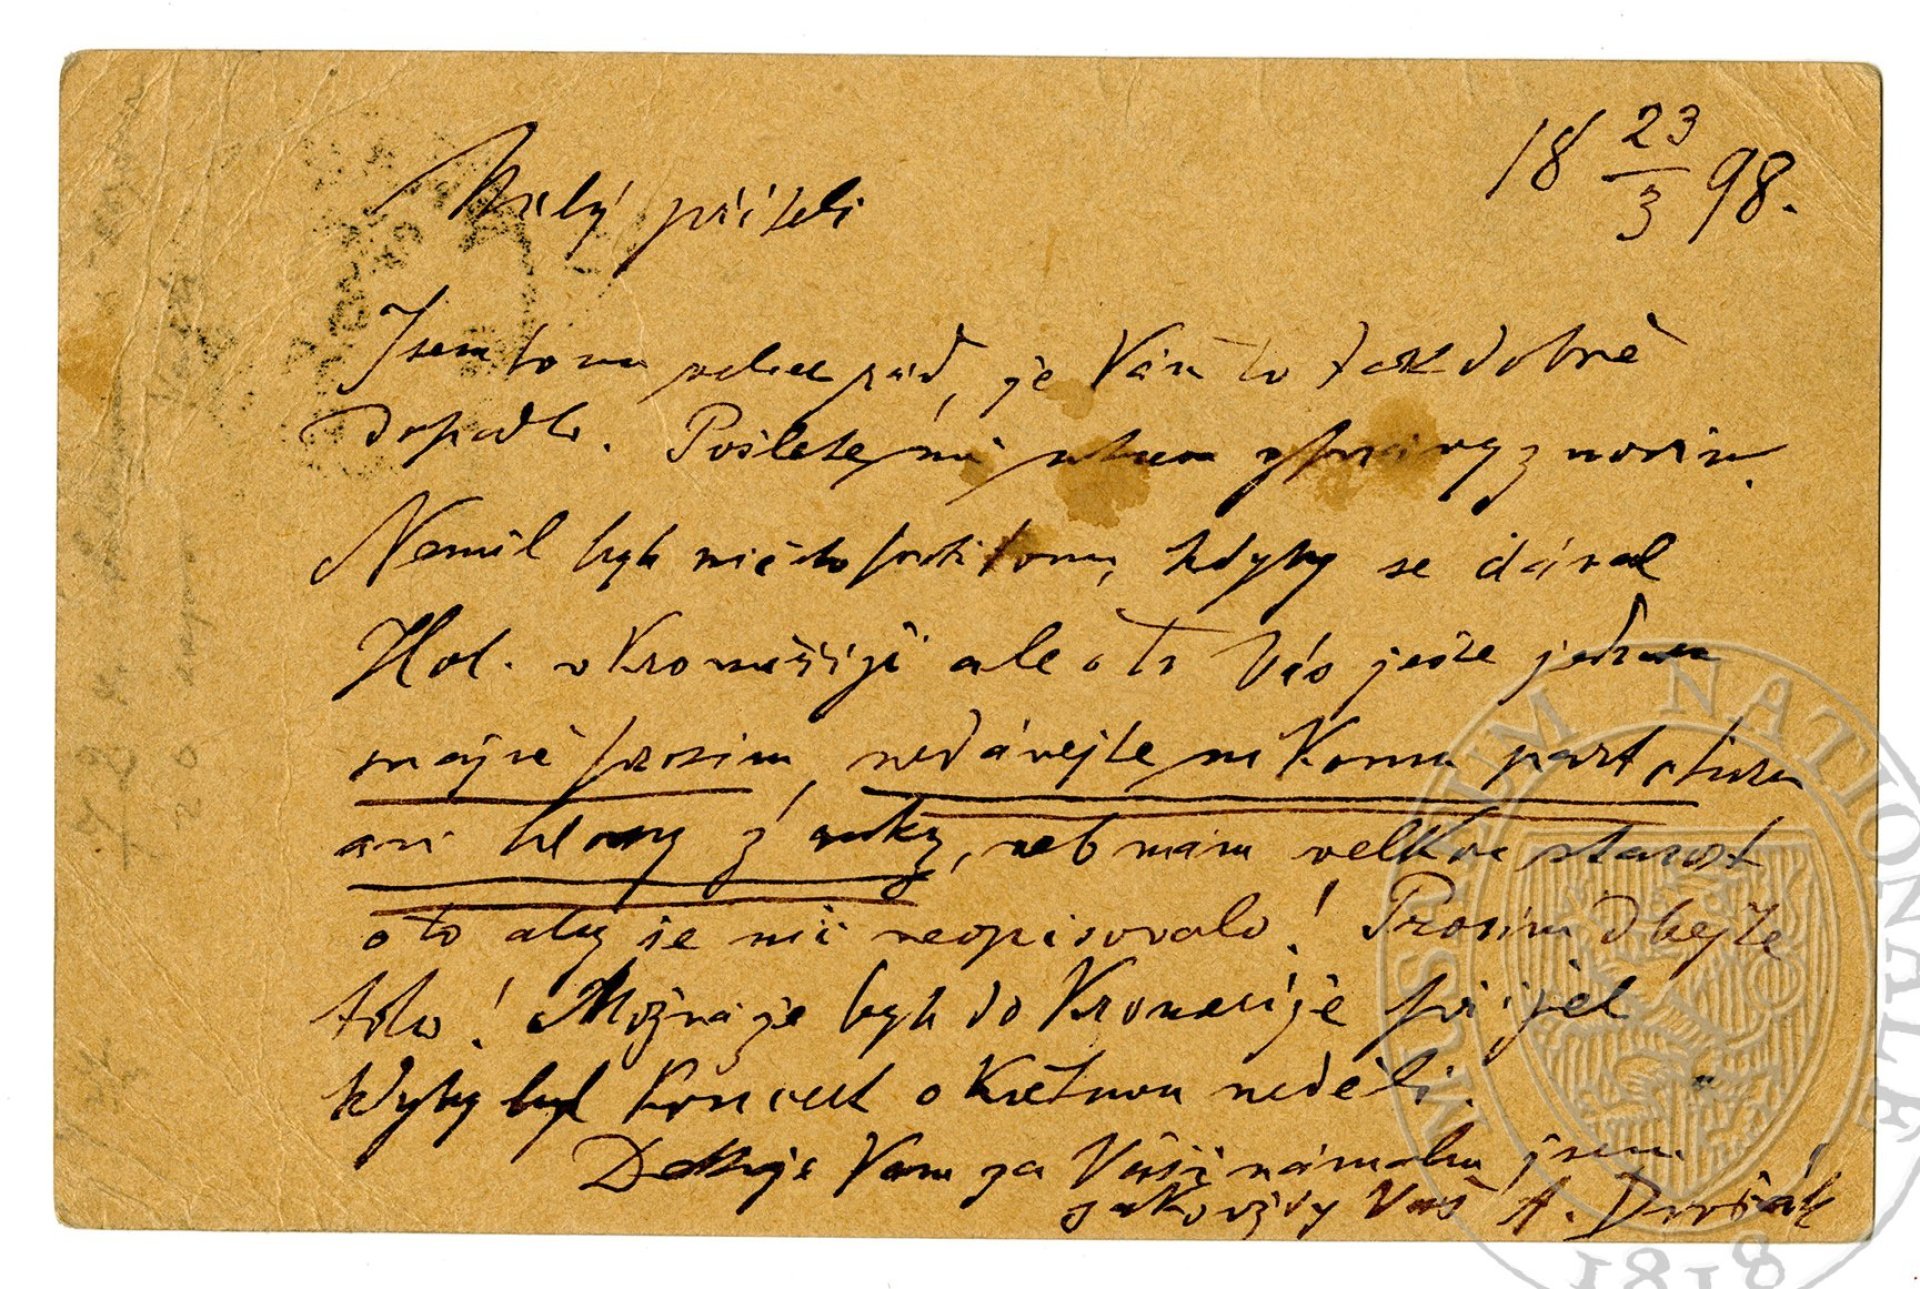 18 23/3 98.
Milý příteli
Jsem tomu velice rád, že Vám to tak dobře
dopadlo. Pošlete mi zprávy z novin.
Neměl bych ničeho proti tomu, kdyby se dával
Hol. v Kroměříži ale o to Vás ještě jednou
snažně prosím, nedávejte nikomu partituru
ani hlasy z ruky, neb mám velkou starost
o to aby se nic neopisovalo! Prosím dbejte
toho! Možná že bych do Kroměříže přijel
kdyby byl koncert o Květnou neděli.
Děkuje Vám za Vaši námahu jsem
jako vždy Váš A. Dvořák
MUSEUM NATIONALE
1818